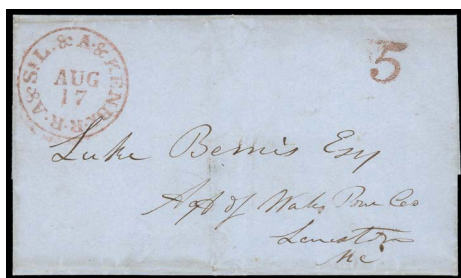 A.&S^t.L.&A.&KEND.R.R.
AUG
17
5
Luke Bemis Esq
Agt of Water Power Co
Lewiston
Me.